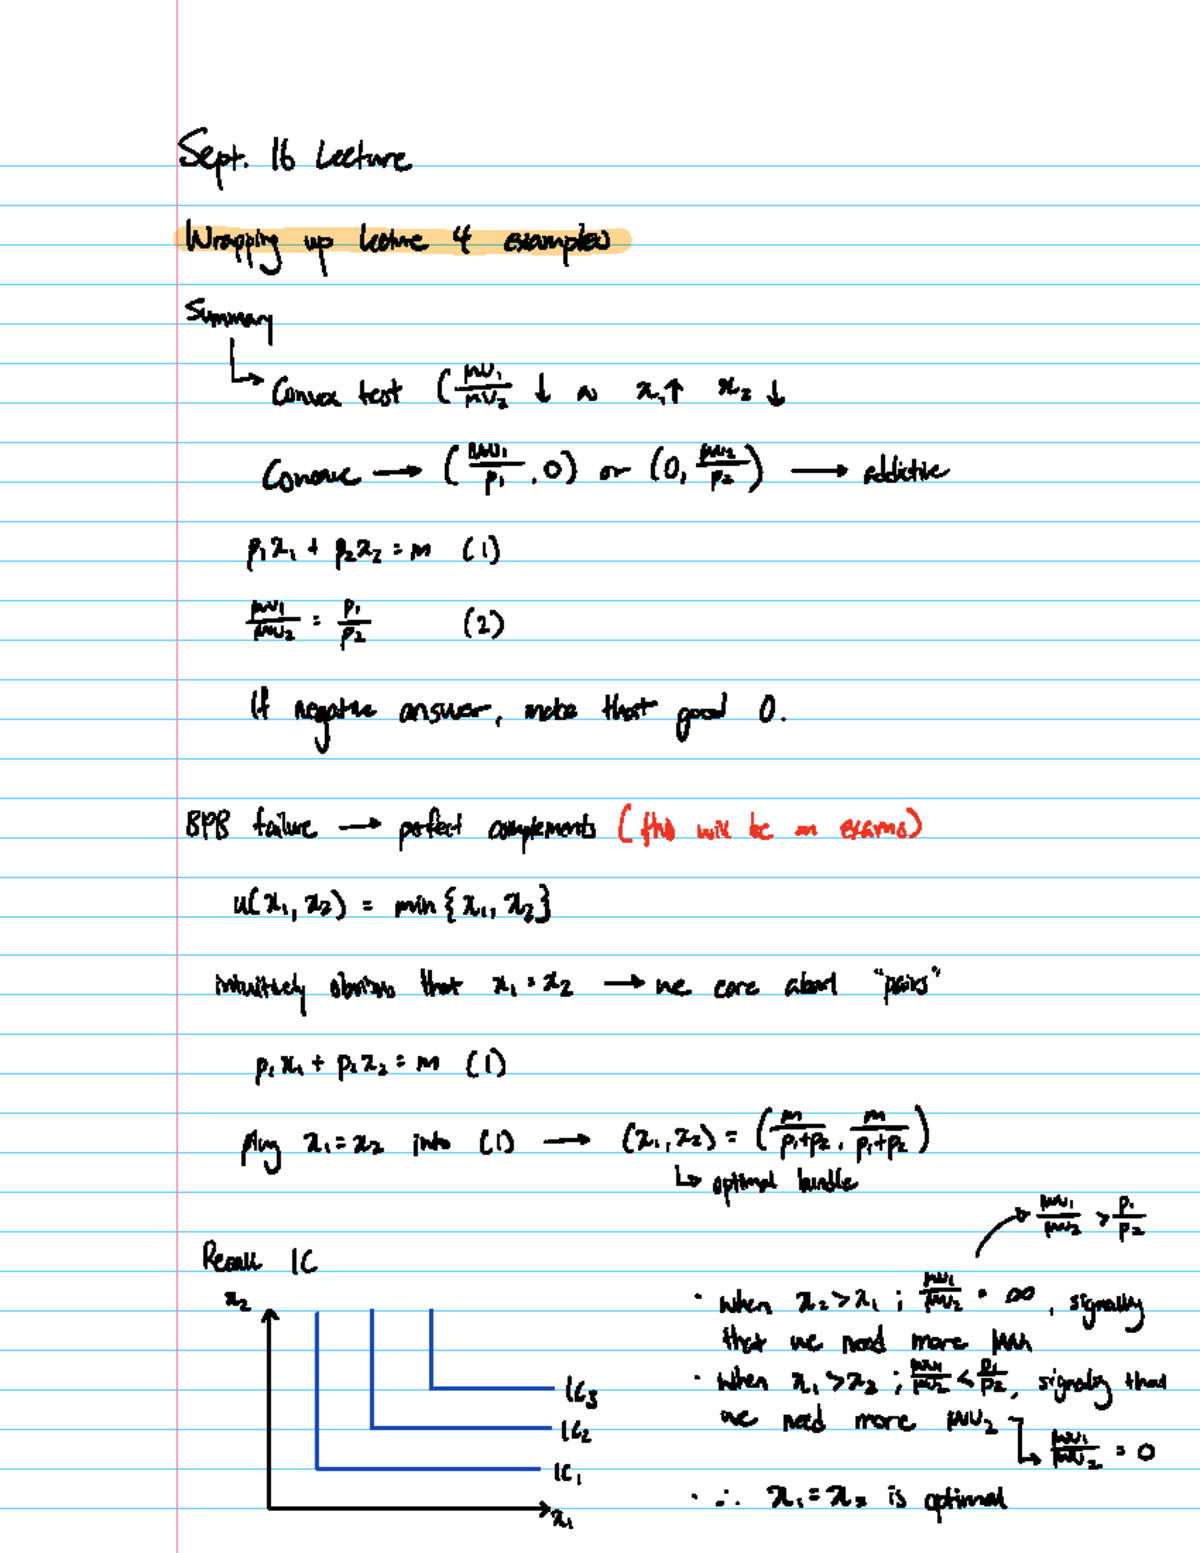 Sept. 16 Lecture
Wrapping up lecture 4 examples
Summary
↳ Convex test (MU₁/MU₂ ↓ as x₁↑ x₂↓
Concave → (MU₁/p₁, 0) or (0, MU₂/p₂) → addictive
p₁x₁ + p₂x₂ = m (1)
MU₁/MU₂ = p₁/p₂ (2)
If negative answer, make that good 0.
BPB failure → perfect complements (this will be on exams)
u(x₁, x₂) = min{x₁, x₂}
intuitively obvious that x₁ = x₂ → we care about "pairs"
p₁x₁ + p₂x₂ = m (1)
plug x₁ = x₂ into (1) → (x₁, x₂) = (m/p₁+p₂, m/p₁+p₂)
↳ optimal bundle
Recall IC
x₂
IC₃
IC₂
IC₁
x₁
MU₁/MU₂ > p₁/p₂
· when x₂ > x₁ ; MU₁/MU₂ = ∞, signalling
that we need more MU₁
· when x₁ > x₂ ; MU₁/MU₂ < p₁/p₂, signaling that
we need more MU₂
↳ MU₁/MU₂ = 0
· ∴ x₁ = x₂ is optimal